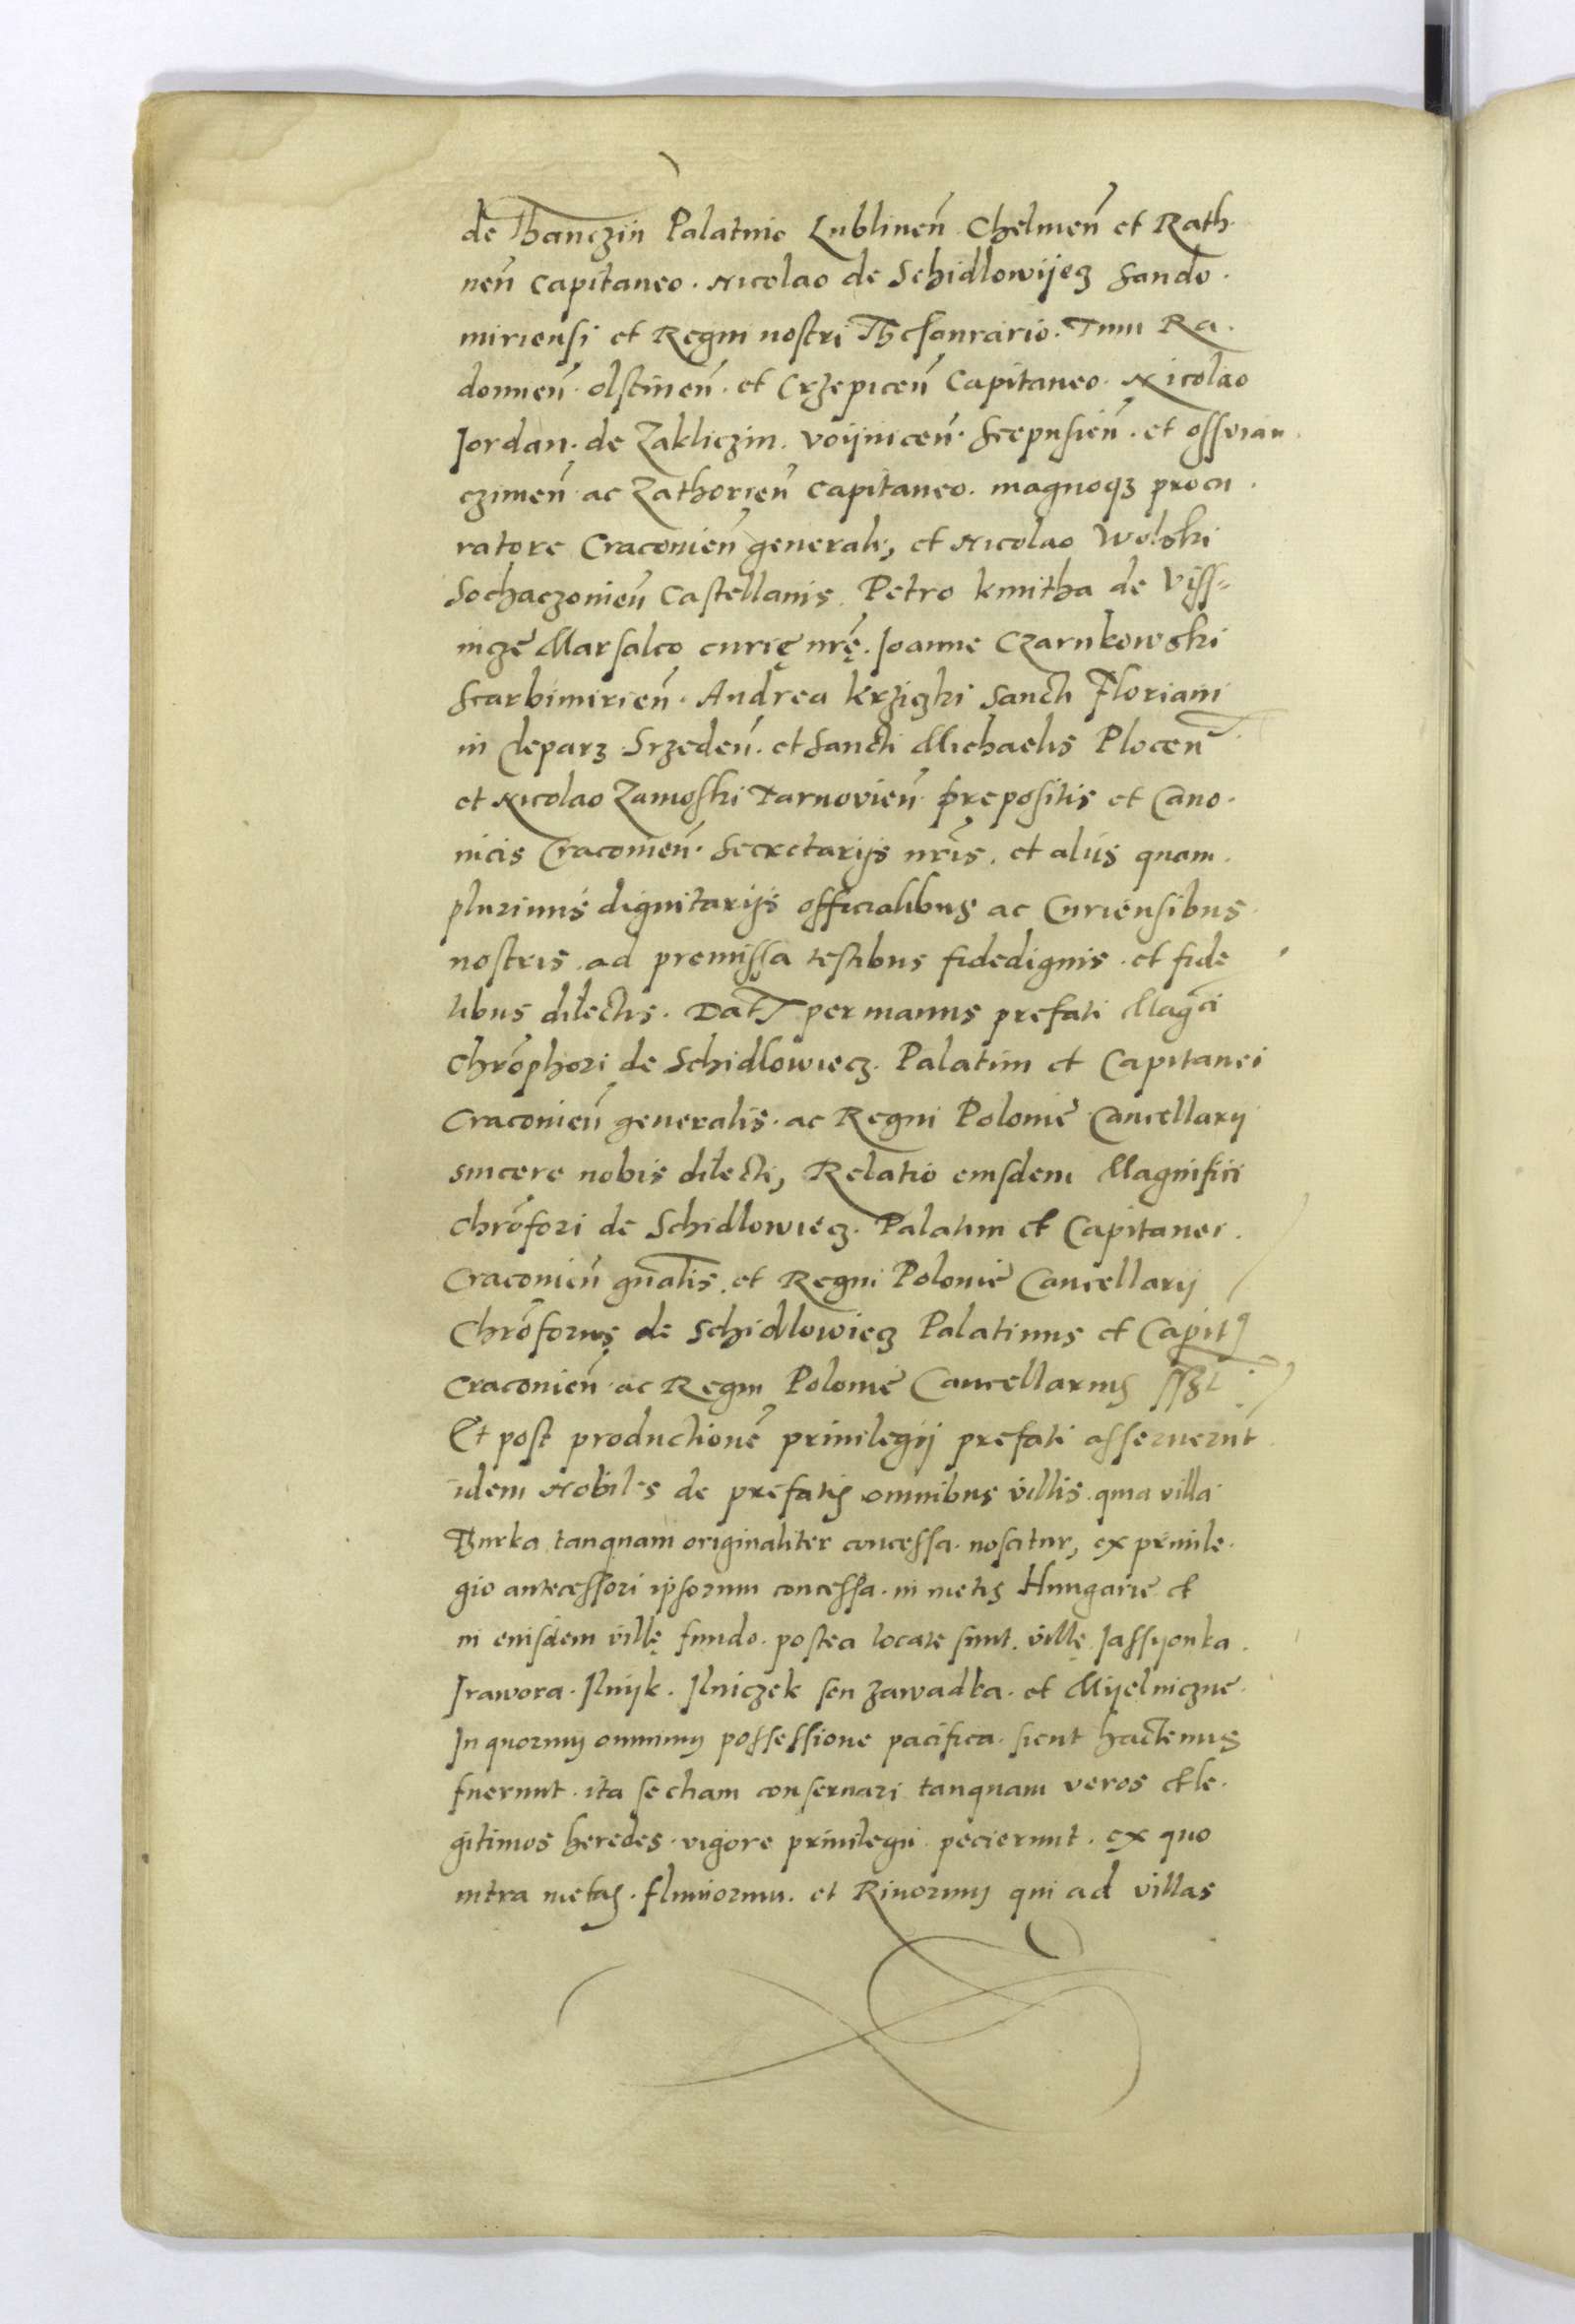 de Thanczin Palatino Lublinen̄ Chelmen̄ et Rath
nen̄ Capitaneo. Nicolao de Schidlowijecz Sando.
miriensi et Regni nostri Thesaurario. Tum Ra.
domien̄. olstinen̄. et Crzepicen̄ Capitaneo. Nicolao
Jordan. de Zakliczin. Voijnicen̄. Scepusien̄. et osswian
czimen̄ ac Zathorien̄ Capitaneo. magnoqȝ procu.
ratore Cracovien̄ generali, et Nicolao Wolski
Sochaczovien̄ Castellanis. Petro kmitha de Viss=
nicze Marsalco curię nr̄ę. Joanne Czarnkowski
Scarbimirien̄. Andrea krziczki Sancti Floriani
in Cleparz. Srzeden̄. et Sancti Michaelis Plocen̄
et Nicolao Zamoski Tarnovien̄ prepositis et Cano.
nicis Cracovien̄. Secretarijs nr̄is. et alijs quam.
plurimis dignitarijs officialibus ac Curiensibus
nostris. ad premissa testibus fidedignis. et fide
libus dilectis. Dat̄ per manus prefati Maḡci
Chrōphori de Schidlowiecz. Palatini et Capitanei
Cracovien̄ generalis. ac Regni Polonie Cancellarij
sincere nobis dilecti, Relatio eiusdem Magnifici
Chrōfori de Schidlowiecz. Palatini et Capitanei.
Cracovien̄ gn̄alis. et Regni Polonie Cancellarij
Chrōforus de Schidlowiecz Palatinus et Capit9
Cracovien̄. ac Regni Polonie Cancellarius sszt
Et post productionē privilegij prefati asseruerūt
idem Nobiles de prefatis omnibus villis. quia villa
Thurka tanquam originaliter concessa. noscitur, ex privile.
gio antecessori ipsorum concessa. in metis Hungarie et
in eiusdem villę fundo. postea locate sunt. villę. Jassyonka.
Jrawora. Jlnijk. Jlniczek seu zawadka. et Mijelniczne.
In quorum omnium possessione pacifica. sicut hactenus
fuerunt. ita se etiam conservari tanquam veros et le.
gitimos heredes. vigore privilegii. pecierunt. ex quo
intra metas. fluviorum. et Rivorum qui ad villas